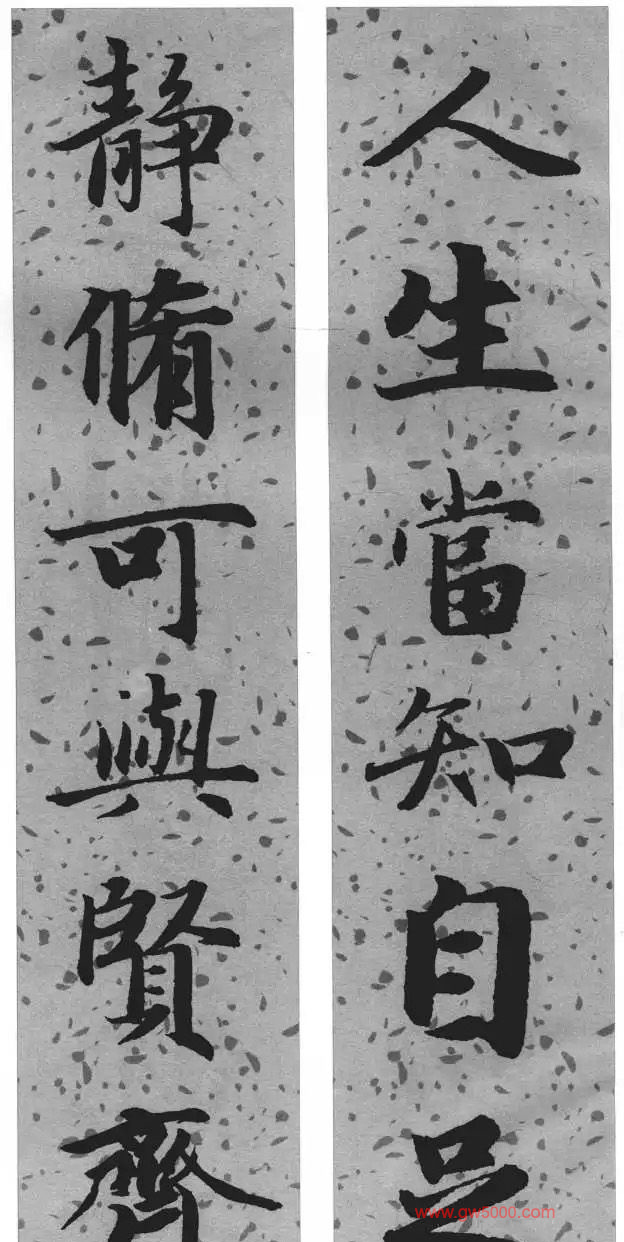 人生當知自
静脩可與賢齊
www.gw5000.com